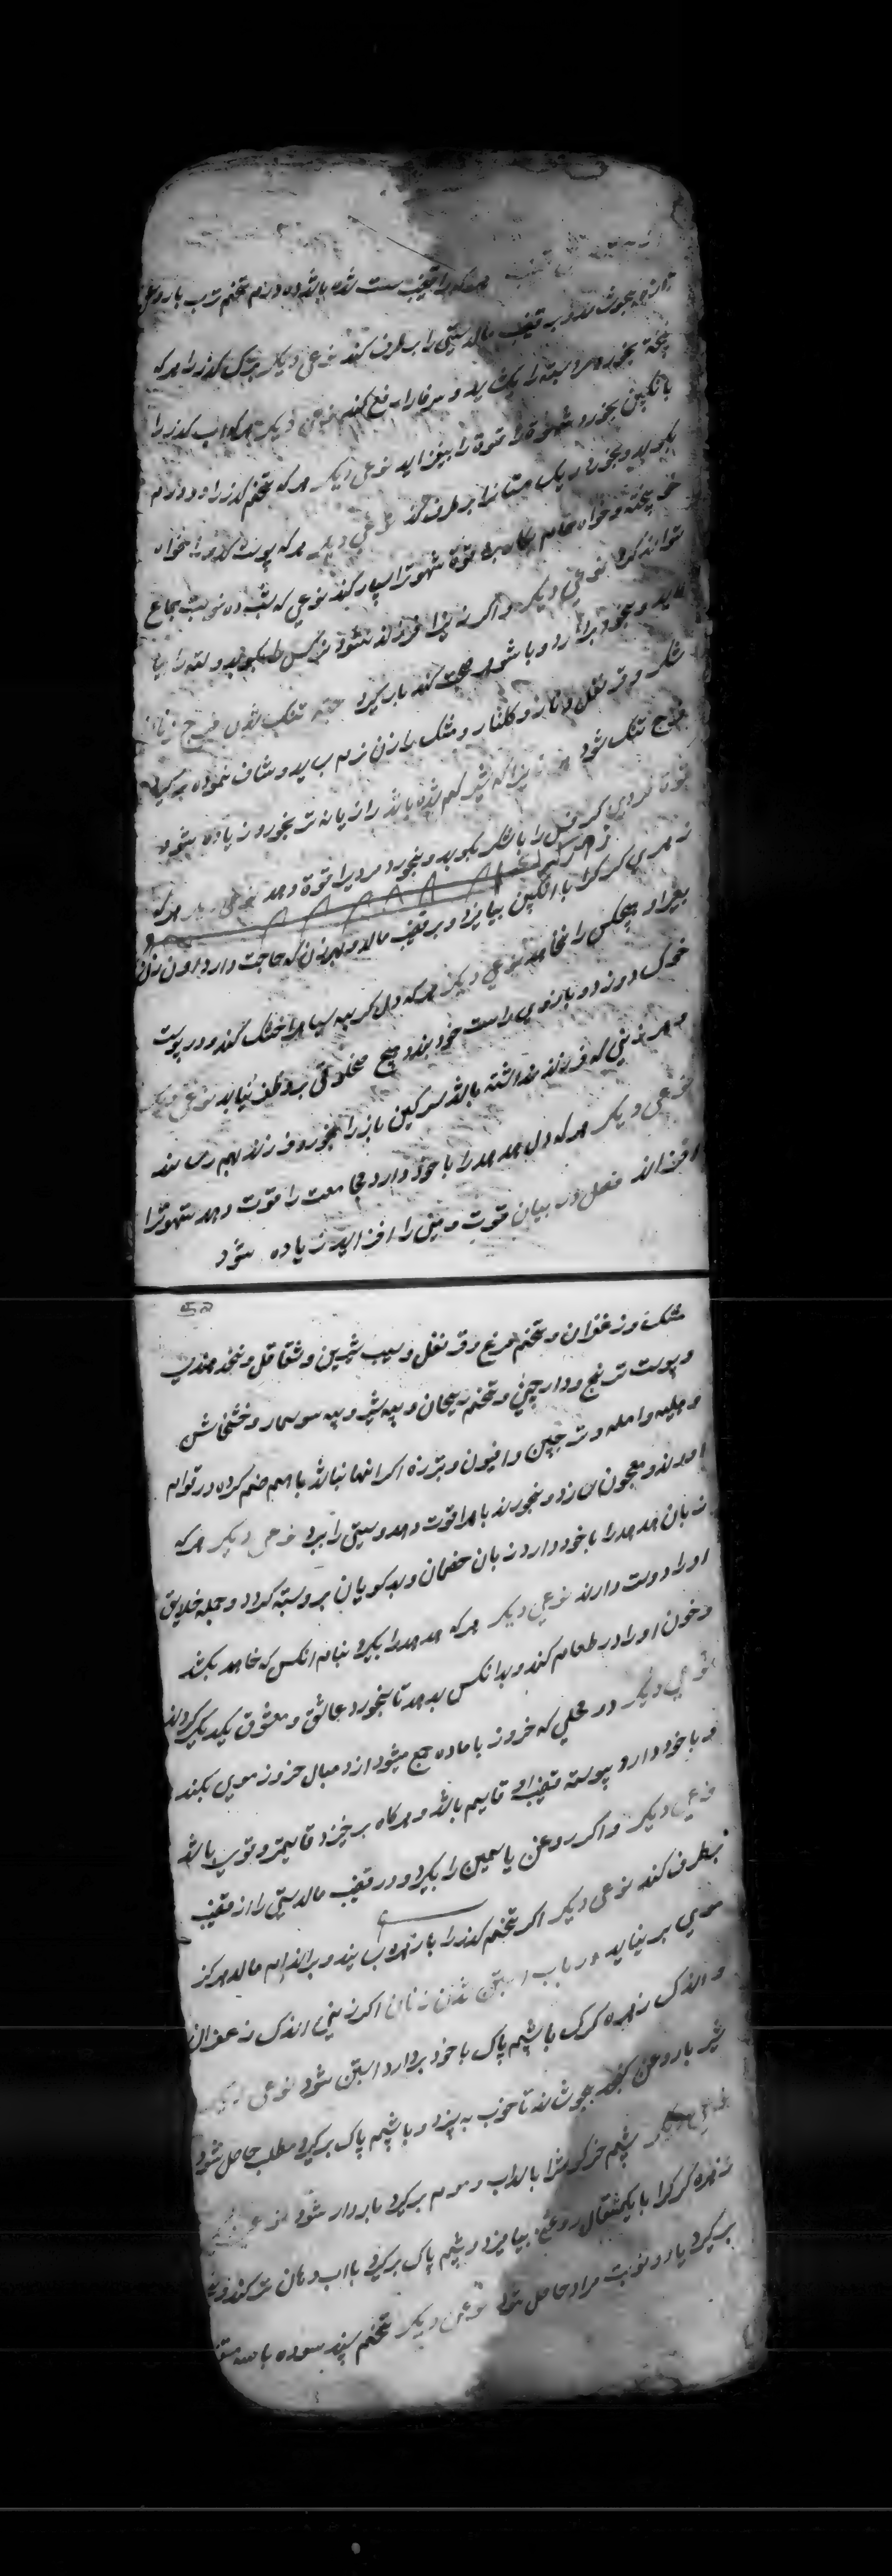 هرکه را قضیب سست شده باشد ده درم تخم ترب با روغن
بجوشاند و بر قضیب مالد سستی را برطرف کند نوعی دیگر کذر را هرکه
پخته بخورد بسته را بکشاید و سرفه را رفع کند نوعی دیگر هرکه آب کذر را
بانگبین بخورد شهوة را قوة را بیفزاید نوعی دیگر هرکه تخم کذر را دو درم
بکوبد و بخورد ریک مثانه را برطرف کند نوعی دیگر هرکه پوست کدو را خواه
پخته و خواه خام بکار برد قوة شهوترا بسیار کند نوعی که بشب ده نوبت جماع
تواند کرد نوعی دیگر و اگر زنیرا فرزند نشود نرکس را بکوبد و لته را
و بخود بردارد و با شوهر صحبت کند بار گیرد جهة تنک شدن فرج زنان
شکر و قرنفل و مازو و کلنار و مشک را زن نرم بساید و شاف نموده برگیرد
فرج تنک شود زنانیرا که شیر کم شده باشد رازیانه تر بخورد زیاده شود
کرفس را با شکر بکوبد و بخورد مردیرا قوة دهد نوعی دیگر هرکه
زهره کرک را با انگبین بیامیزد و بر قضیب مالد و بهر زن که حاجت دارد آن زن
بغیر او هیچکس را نخواهد نوعی دیگر هرکه دل کربه سیاه را خشک کند و در پوست
خوک دوزد و بازوی راست خود بندد هیچ مخلوقی برو ظفر نیابد نوعی دیگر
و هر زنی که فرزند نداشته باشد سرکین باز را بخورد فرزند بهم رساند
نوعی دیگر هرکه دل هدهد را با خود دارد مجامعت را قوت دهد شهوترا
افزاند فصل در بیان قوت و منی را افزاید زیاده شود
مشک و زعفران و تخم مرغ و قرنفل و سیب شیرین و شقاقل و نخود هندی
و پوست ترنج و دارچینی و تخم ریحان و پیه شیر و پیه سوسمار و خشخاش
و هلیله و امله و ترنجبین و افیون و اگر اینها نباشد با هم ضم کرده در قوام
اورند و معجون سازد و بخورند باه را قوت دهد و سستی را برد نوعی دیگر هرکه
زبان هدهد را با خود دارد زبان خصمان و بدکویان برو بسته کردد و جمله خلایق
او را دوست دارند نوعی دیگر هرکه هدهد را بگیرد بنام انکس که خواهد بکشد
و خون او را در طعام کند و بدانکس بدهد تا بخورد عاشق و معشوق یکدیگر گردند
نوعی دیگر در محلی که خر نر با ماده جمع میشود از دنبال خر نر موی بکند
و با خود دارد پیوسته قضیب او قایم باشد و هرکاه برخیزد قایمتر و قوی باشد
نوعی دیگر و اگر روغن یاسمین را بگیرد و در قضیب مالد سستی را از قضیب
برطرف کند نوعی دیگر اگر تخم کذر را با زهره بساید و بر اندام مالد هرکز
موی برنیاید در باب آبستن شدن زنان اگر زنی اندک زعفران
و اندک زهره کرک با پشم پاک با خود بردارد آبستن شود نوعی دیگر
شیر با روغن کنجد بجوشاند تا خوب بپزد و با پشم پاک برگیرد مطلب حاصل شود
نوعی دیگر پشم خرکوش را با آب و موم برگیرد باردار شود نوعی دیگر
زهره کرک را با یکمثقال روغن بیامیزد و پشم پاک برگیرد با آب دهان تر کند و
برگیرد یا دو نوبت مراد حاصل شود نوعی دیگر تخم سپند سوده با سه